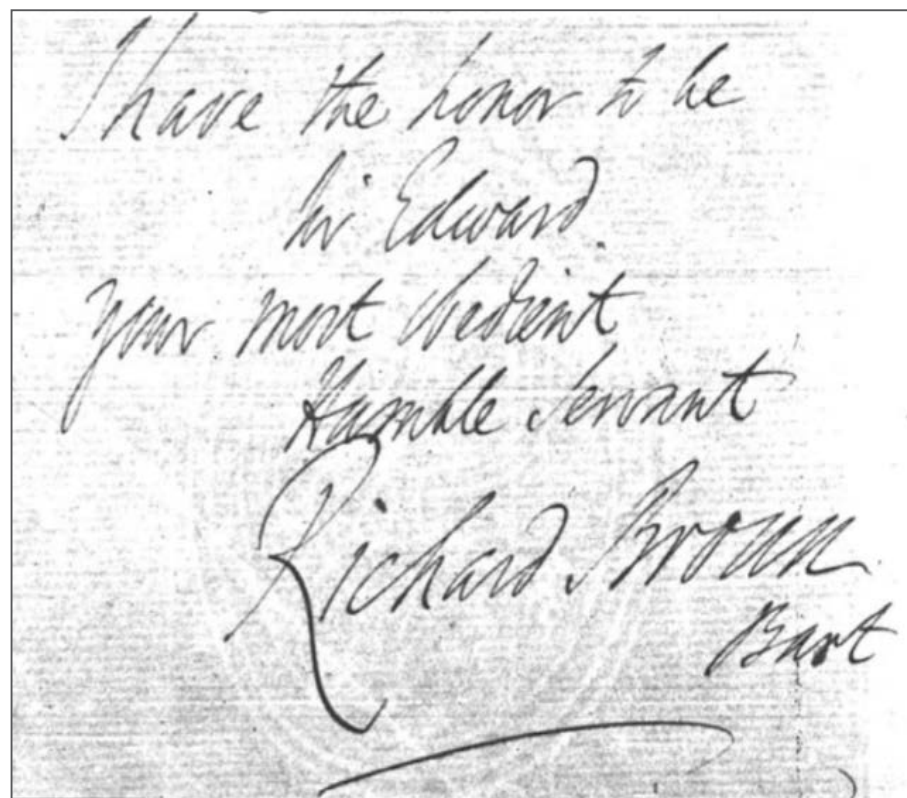 I have the honor to be
Sir Edward
your most obedient
Humble Servant
Richard Broun
Bart